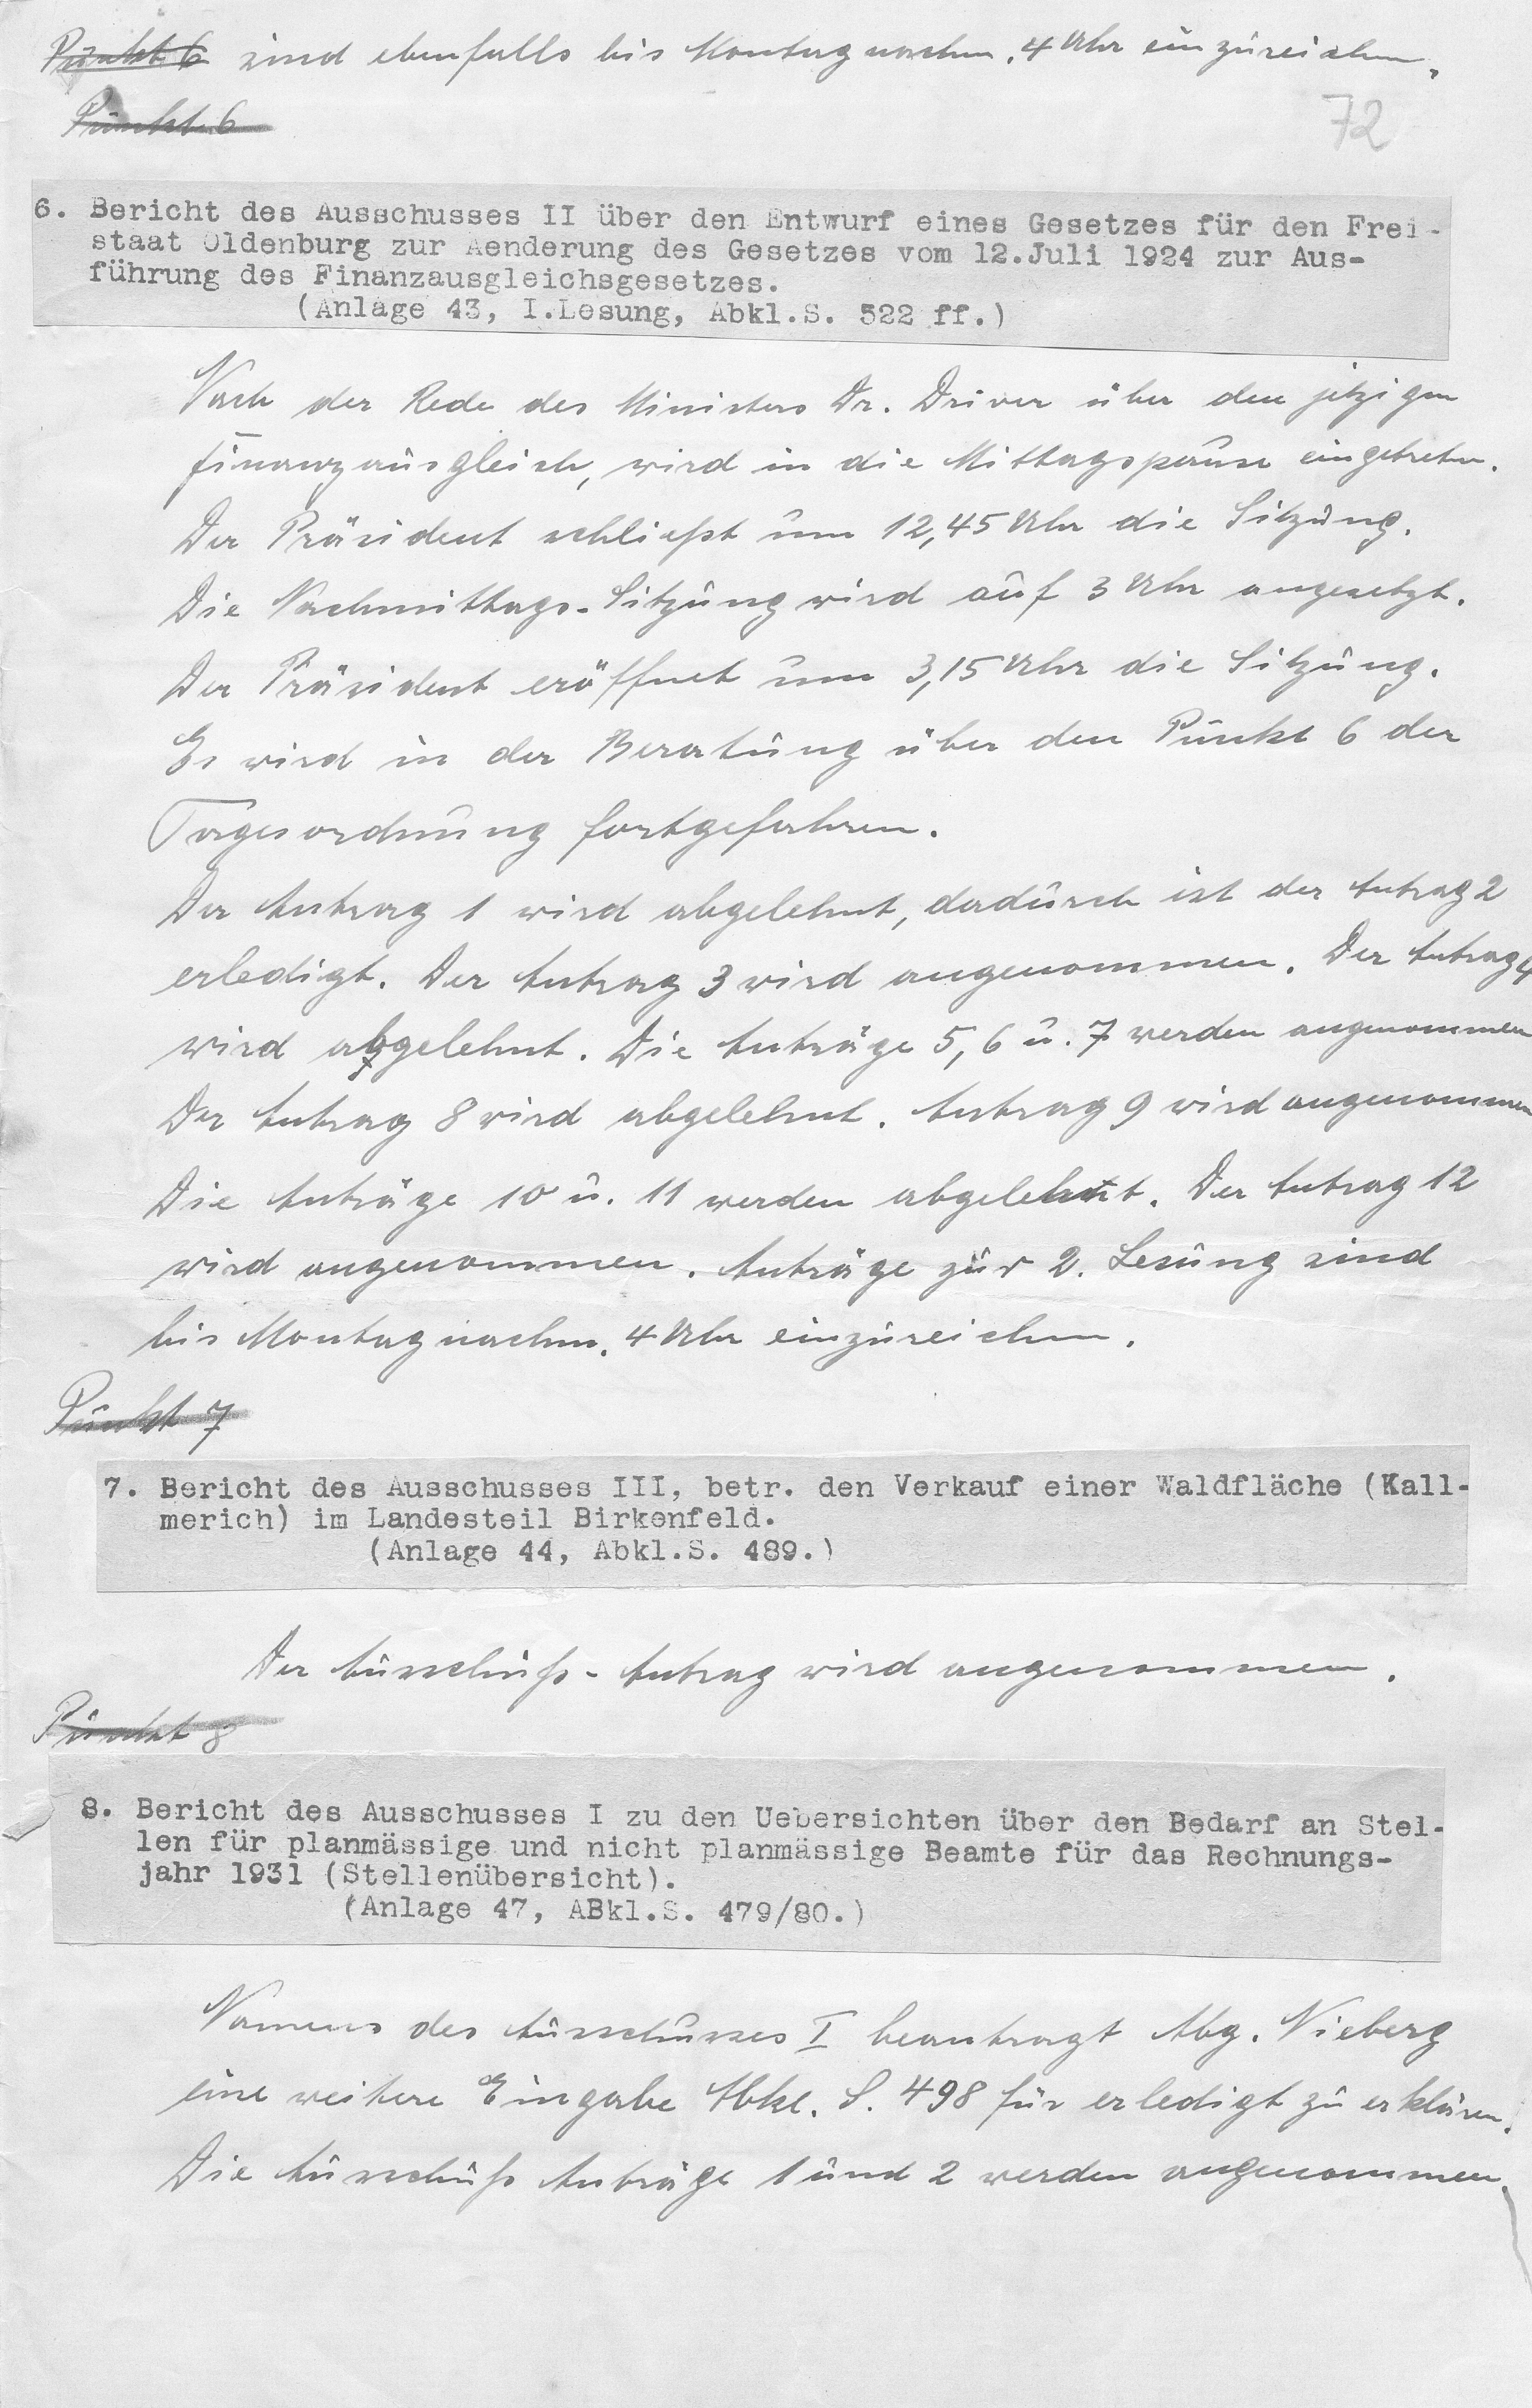 Punkt 6 sind ebenfalls bis Montag nachm. 4 Uhr einzureichen.
Punkt 6
72
6. Bericht des Ausschusses II über den Entwurf eines Gesetzes für den Frei-
staat Oldenburg zur Aenderung des Gesetzes vom 12.Juli 1924 zur Aus-
führung des Finanzausgleichsgesetzes.
(Anlage 43, I.Lesung, Abkl.S. 522 ff.)
Nach der Rede des Ministers Dr. Driver über den jetzigen
Finanzausgleich, wird in die Mittagspause eingetreten.
Der Präsident schließt um 12,45 Uhr die Sitzung.
Die Nachmittags-Sitzung wird auf 3 Uhr angesetzt.
Der Präsident eröffnet um 3,15 Uhr die Sitzung.
Es wird in der Beratung über den Punkt 6 der
Tagesordnung fortgefahren.
Der Antrag 1 wird abgelehnt, dadurch ist der Antrag 2
erledigt. Der Antrag 3 wird angenommen. Der Antrag 4
wird abgelehnt. Die Anträge 5, 6 u. 7 werden angenommen
Der Antrag 8 wird abgelehnt. Antrag 9 wird angenommen
Die Anträge 10 u. 11 werden abgelehnt. Der Antrag 12
wird angenommen. Anträge zur 2. Lesung sind
bis Montag nachm. 4 Uhr einzureichen.
Punkt 7
7. Bericht des Ausschusses III, betr. den Verkauf einer Waldfläche (Kall-
merich) im Landesteil Birkenfeld.
(Anlage 44, Abkl.S. 489.)
Der Ausschuß-Antrag wird angenommen.
Punkt 8
8. Bericht des Ausschusses I zu den Uebersichten über den Bedarf an Stel-
len für planmässige und nicht planmässige Beamte für das Rechnungs-
jahr 1931 (Stellenübersicht).
(Anlage 47, ABkl.S. 479/80.)
Namens des Ausschusses I beantragt Abg. Nieberg
eine weitere Eingabe Abkl. S. 498 für erledigt zu erklären.
Die Ausschuß Anträge 1 und 2 werden angenommen.